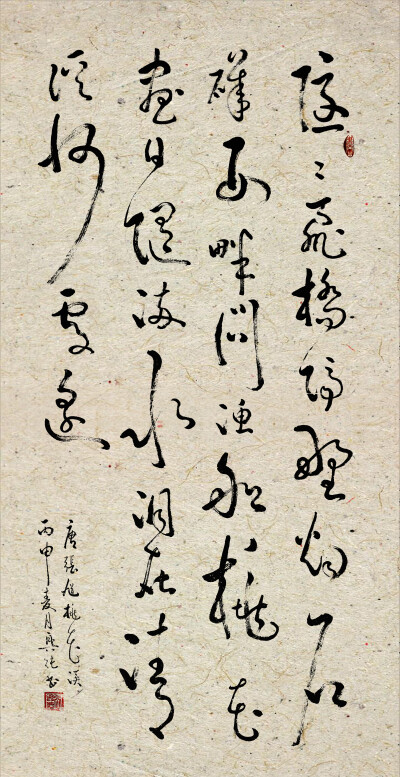 隱〻飛橋隔野烟石
磯西畔問漁船桃花
盡日隨流水洞在清
溪何處邊
唐張旭桃花溪
丙申月书